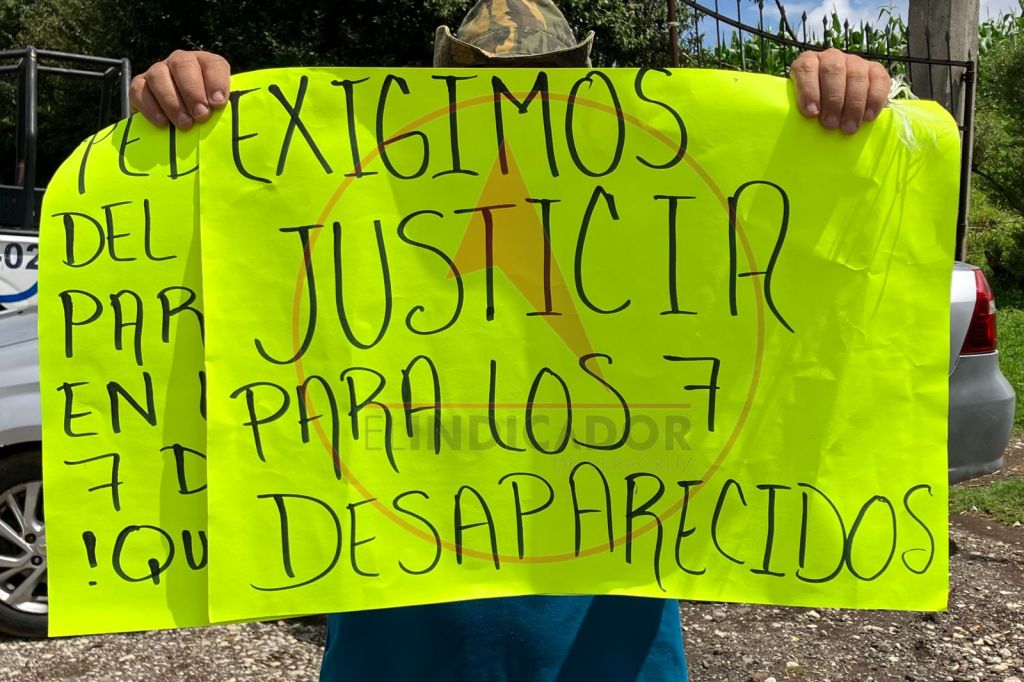 EXIGIMOS
JUSTICIA
PARA LOS 7
DESAPARECIDOS
DEL
PAR
EN
7 D
!QU
-02
EL INDICADOR
DE VERACRUZ